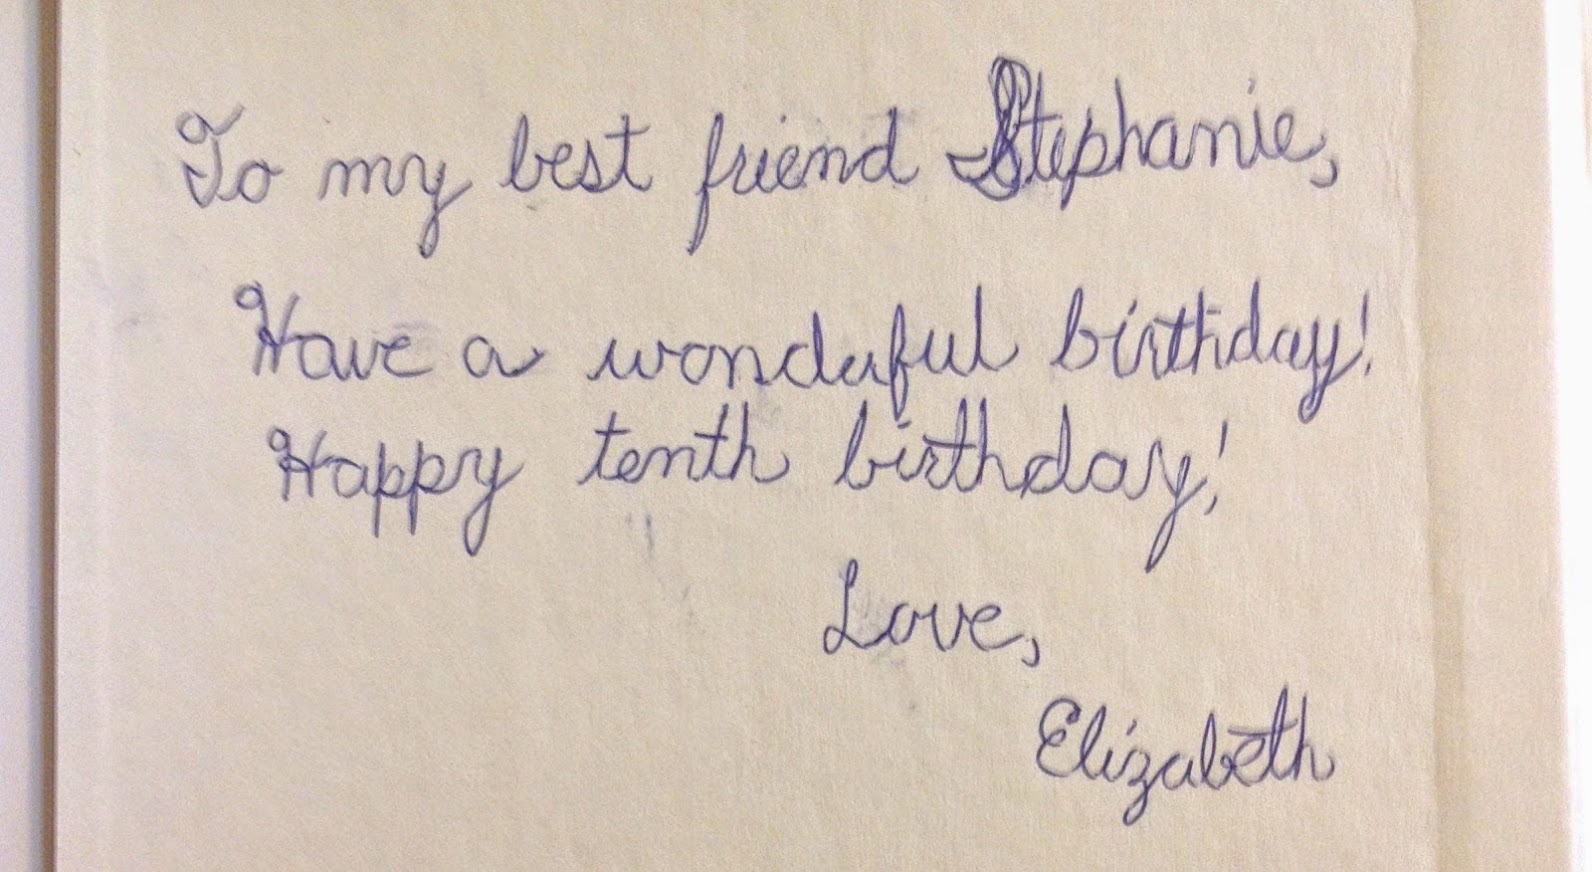 To my best friend Stephanie,
Have a wonderful birthday!
Happy tenth birthday!
Love,
Elizabeth